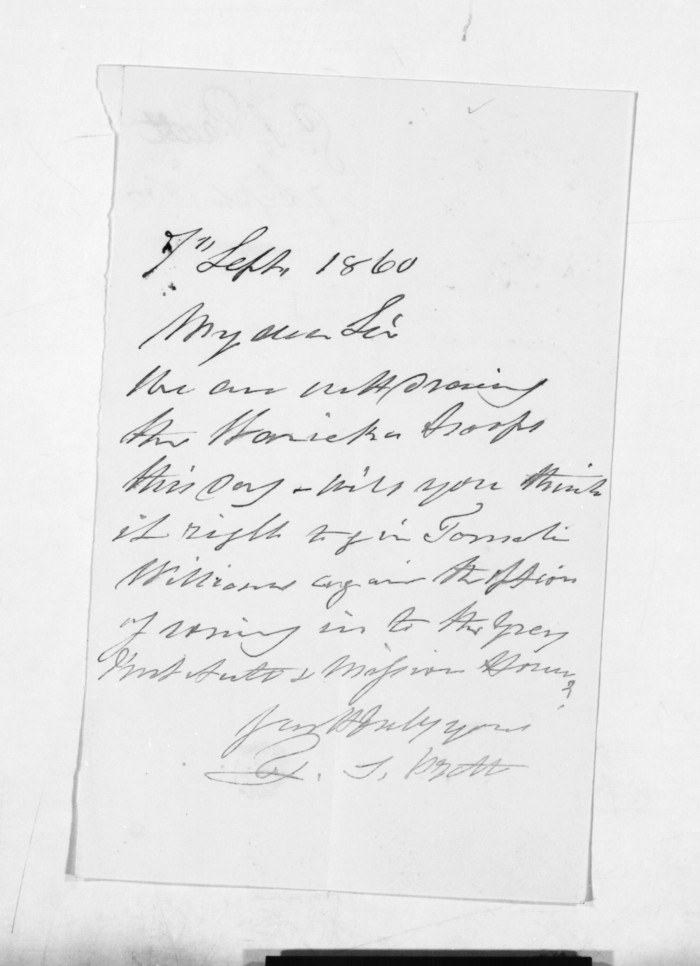 7" Septr 1860
My dear Sir
We are withdrawing
the Waireka troops
this day & will you think
it right to give Tamati
Williams again the option
of coming in to the Grey
Institute & Mission House?
very truly yours
T. Pratt